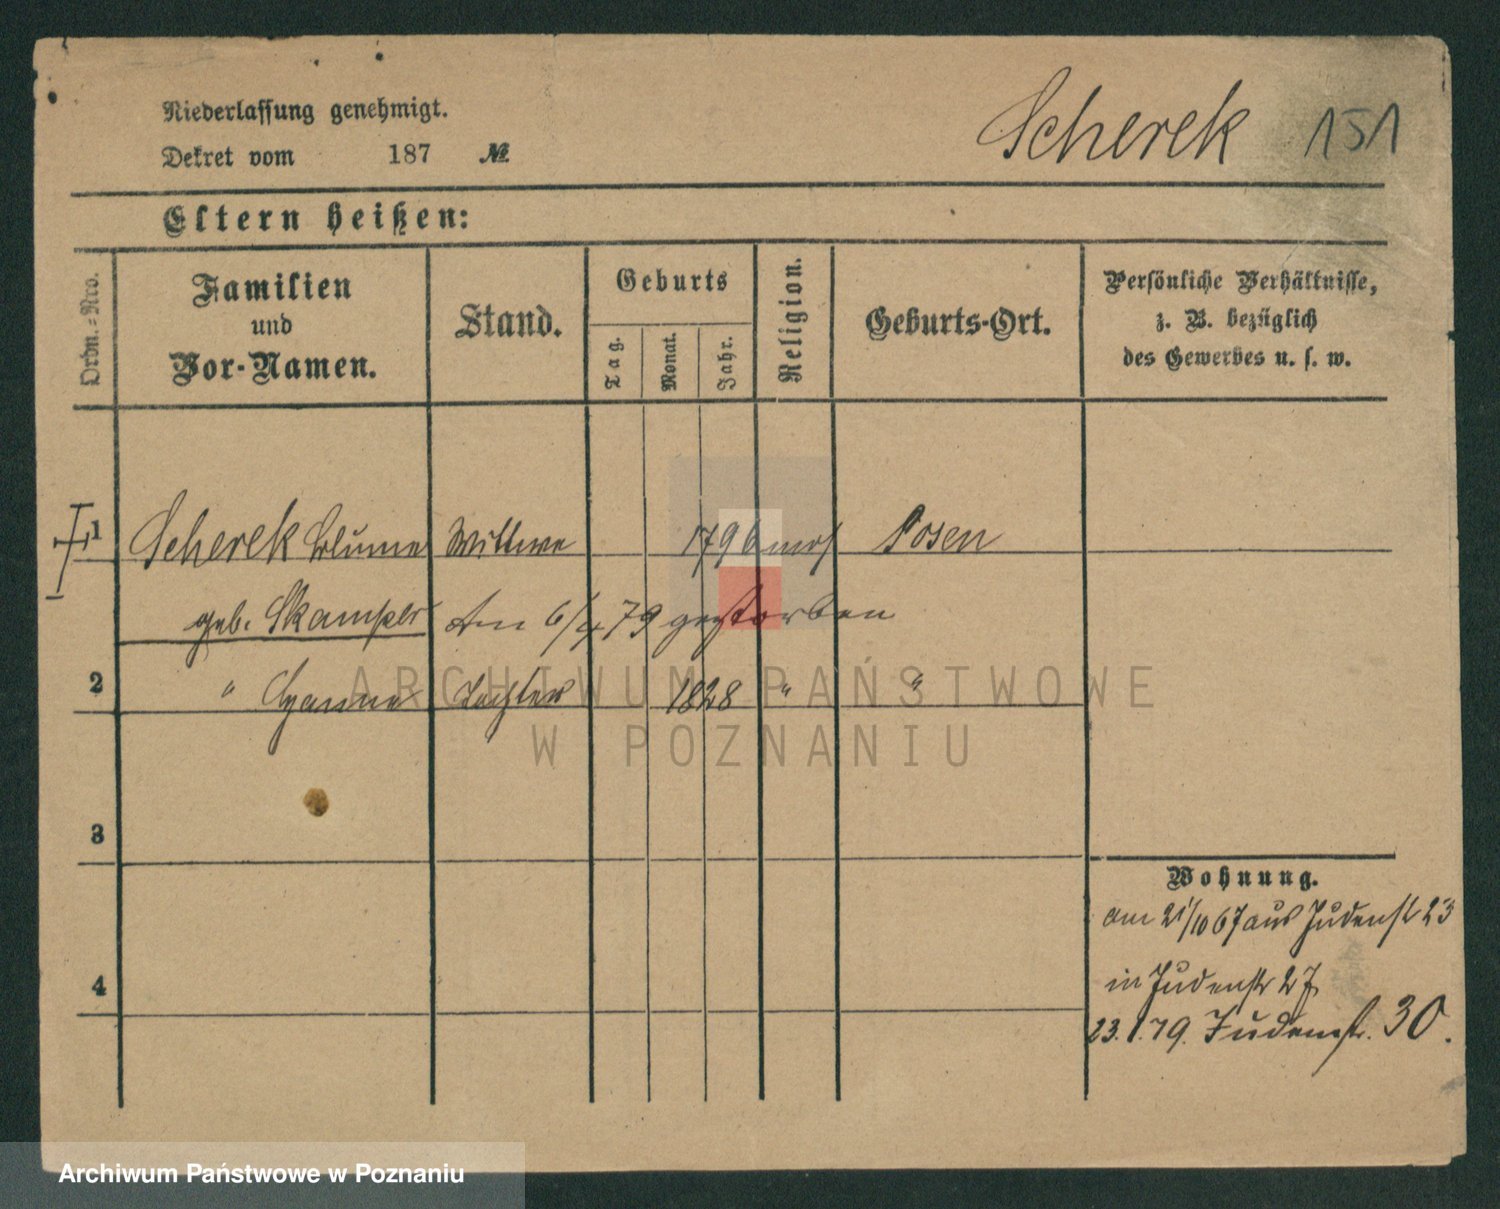 Niederlassung genehmigt.
Scherek 151
Dekret vom 187 №
Eltern heißen:
Ordn.-Nro.
Familien
und
Vor-Namen.
Stand.
Geburts
Tag.
Monat.
Jahr.
Religion.
Geburts-Ort.
Persönliche Verhältnisse,
z. B. bezüglich
des Gewerbes u. s. w.
1 Scherek Blume Wittwe 1796 mos Posen
geb. Skamper am 6/4 79 gestorben
2 " Hanne Tochter 1828 " "
3
4
Wohnung.
am 21/10 67 aus Judenstr 23
in Judenstr 27
23.1.79. Judenstr. 30.
ARCHIWUM PAŃSTWOWE
W POZNANIU
Archiwum Państwowe w Poznaniu